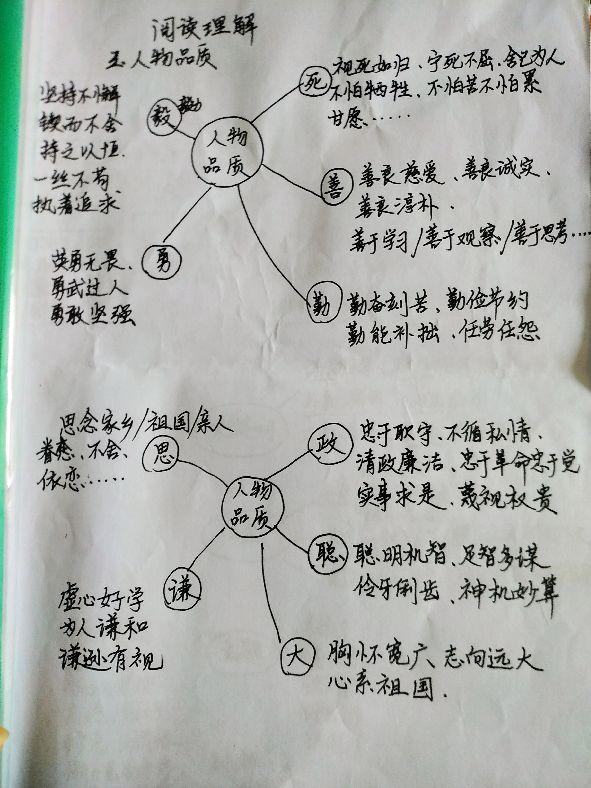 阅读理解
五、人物品质
人物
品质
死
视死如归、宁死不屈、舍己为人
不怕牺牲、不怕苦不怕累
甘愿……
毅
坚持不懈
锲而不舍
持之以恒
一丝不苟
执着追求
善
善良慈爱、善良诚实、
善良淳朴、
善于学习/善于观察/善于思考……
勇
英勇无畏、
勇武过人
勇敢坚强
勤
勤奋刻苦、勤俭节约
勤能补拙、任劳任怨
人物
品质
思
思念家乡/祖国/亲人
眷恋、不舍、
依恋……
政
忠于职守、不循私情、
清政廉洁、忠于革命忠于党
实事求是、蔑视权贵
聪
聪明机智、足智多谋
伶牙俐齿、神机妙算
谦
虚心好学
为人谦和
谦逊有
大
胸怀宽广、志向远大
心系祖国.